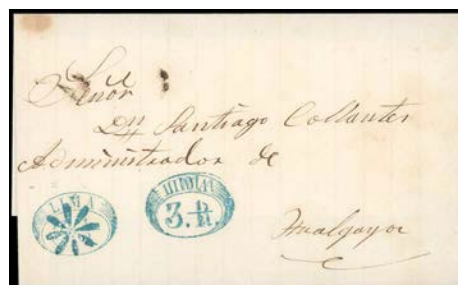 Señor
Dn Santiago Collantes
Administrador de
LIMA
3.
Hualgayoc